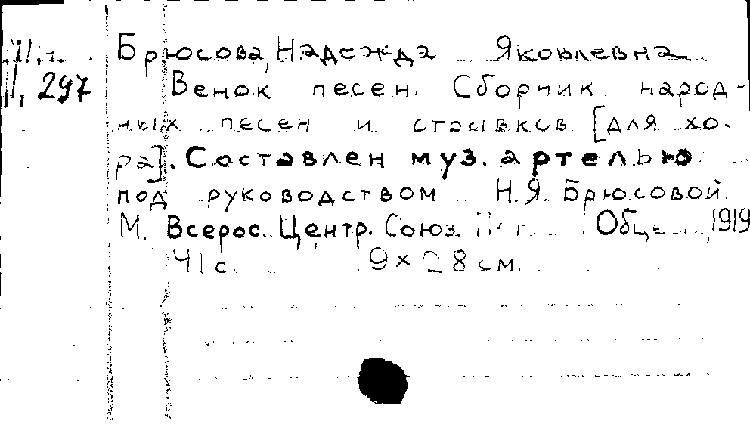 Брюсова, Надежда Яковлевна
II, 297 Венок песен. Сборник народ-
ных песен и
[для хо-
ра]. Составлен муз. артелью
под руководством Н.Я. Брюсовой.
М. Всерос. Центр. Союз. 1919
41 с. 9 × 28 см.